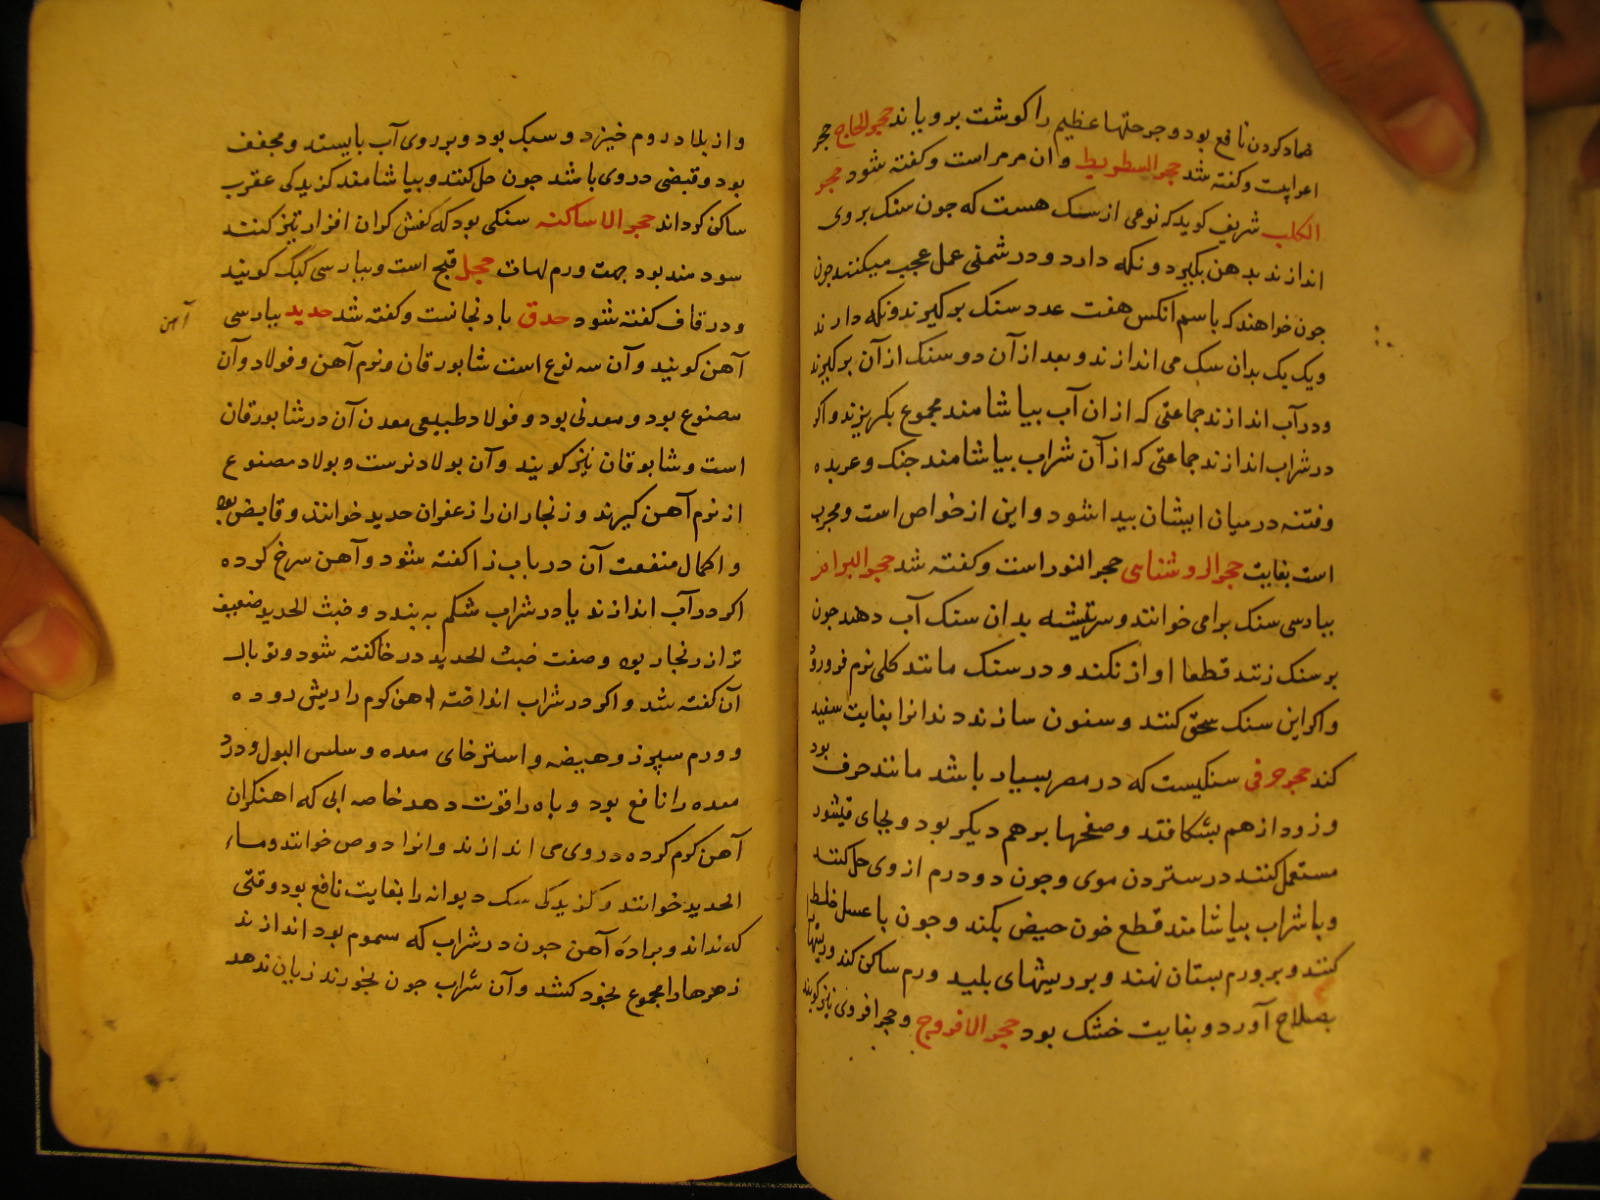 ضماد کردن نافع بود و جرحتها عظیم را کوشت برویاند حجر الحاج حجر
اعرابیست و کفته شد حجر السطریط و ان مرمر است و کفته شود حجر
الکلب شریف کوید که نوعی از سنک هست که جون سنک بروی
اندازند بدهن بکیرد و نکه دارد و در شمنی عمل عجب میکنند جون
جون خواهند که باسم انکس هفت عدد سنک برکیرند و نکه دارند
ویک یک بدان سک می اندازند و بعد از آن دو سنک از آن برکیرند
و در آب اندازند جماعتی که از ان آب بیاشامند مجموع بکریزند و اکر
در شراب اندازند جماعتی که از آن شراب بیاشامند جنک و عربده
وفتنه در میان ایشان بیدا شود و این از خواص است و مجرب
است بغایت حجر الروشنایی حجر النور است و کفته شد حجر البرامر
ببارسی سنک برامی خوانند و سرتیشه بدان سنک آب دهند جون
بر سنک زنند قطعا اواز نکند و در سنک مانند کلی نرم فرورود
و اکر این سنک سحق کنند و سفون سازند دندانرا بغایت سفید
کند حجر حرفی سنکیست که در مصر بسیار باشد مانند حرف بود
و زود از هم بشکافند و صفحها بر هم دیکر بود و بجای قیشور
مستعمل کنند در ستردن موی و جون دو درم از وی حل کنند
و با شراب بیاشامند قطع خون حیض بکند و جون با عسل خلط
کنند و بر ورم بستان نهند و بر ریشهای بلید ورم ساکن کند و ریشها
بصلاح آورد و بغایت خشک بود حجر الافروج و حجر افروی نیز کویند
و از بلاد روم خیزد و سبک بود و بر روی آب بایستد و مجفف
بود و قبضی در وی باشد جون حل کنند و بیاشامند کزیدکی عقرب
ساکن کرداند حجر الاساکنه سنکی بود که کفش کران افزار تیز کنند
سودمند بود جهت ورم لهات حجل قبج است و ببارسی کبک کویند
و در قاف کفته شود حدق بادنجانست و کفته شد حدید ببارسی
آهن
آهن کویند و آن سه نوع است شابورقان و نرم آهن و فولاد و آن
مصنوع بود و معدنی بود و فولاد طبیعی معدن آن در شابورقان
است و شابوقان نیز کویند و آن بولاد نرست و بولاد مصنوع
از نرم آهن کیرند و زنجار ان را زعفران حدید خوانند و قابض بود
و اکمال منفعت آن در باب زا کفته شود و آهن سرخ کرده
اکر در آب اندازند یا در شراب شکم به بندد و خبث الحدید ضعیف
تر از زنجار بود و صفت خبث الحدید در خا کفته شود و توبال
آن کفته شد و اکر در شراب انداخته اهن کرم را ریش روده
و ورم سپرز و هیضه و استرخای معده و سلس البول و درد
معده را نافع بود و باه را قوت دهد خاصه ابی که اهنکران
آهن کرم کرده در وی می اندازند و انرا دوص خوانند و ماء
الحدید خوانند و کزیدکی سک دیوانه را بغایت نافع بود وقتی
که نداند و براده آهن جون در شراب که سموم بود اندازند
زهرها را مجموع بخود کشد و آن شراب جون بخورند زیان ندهد